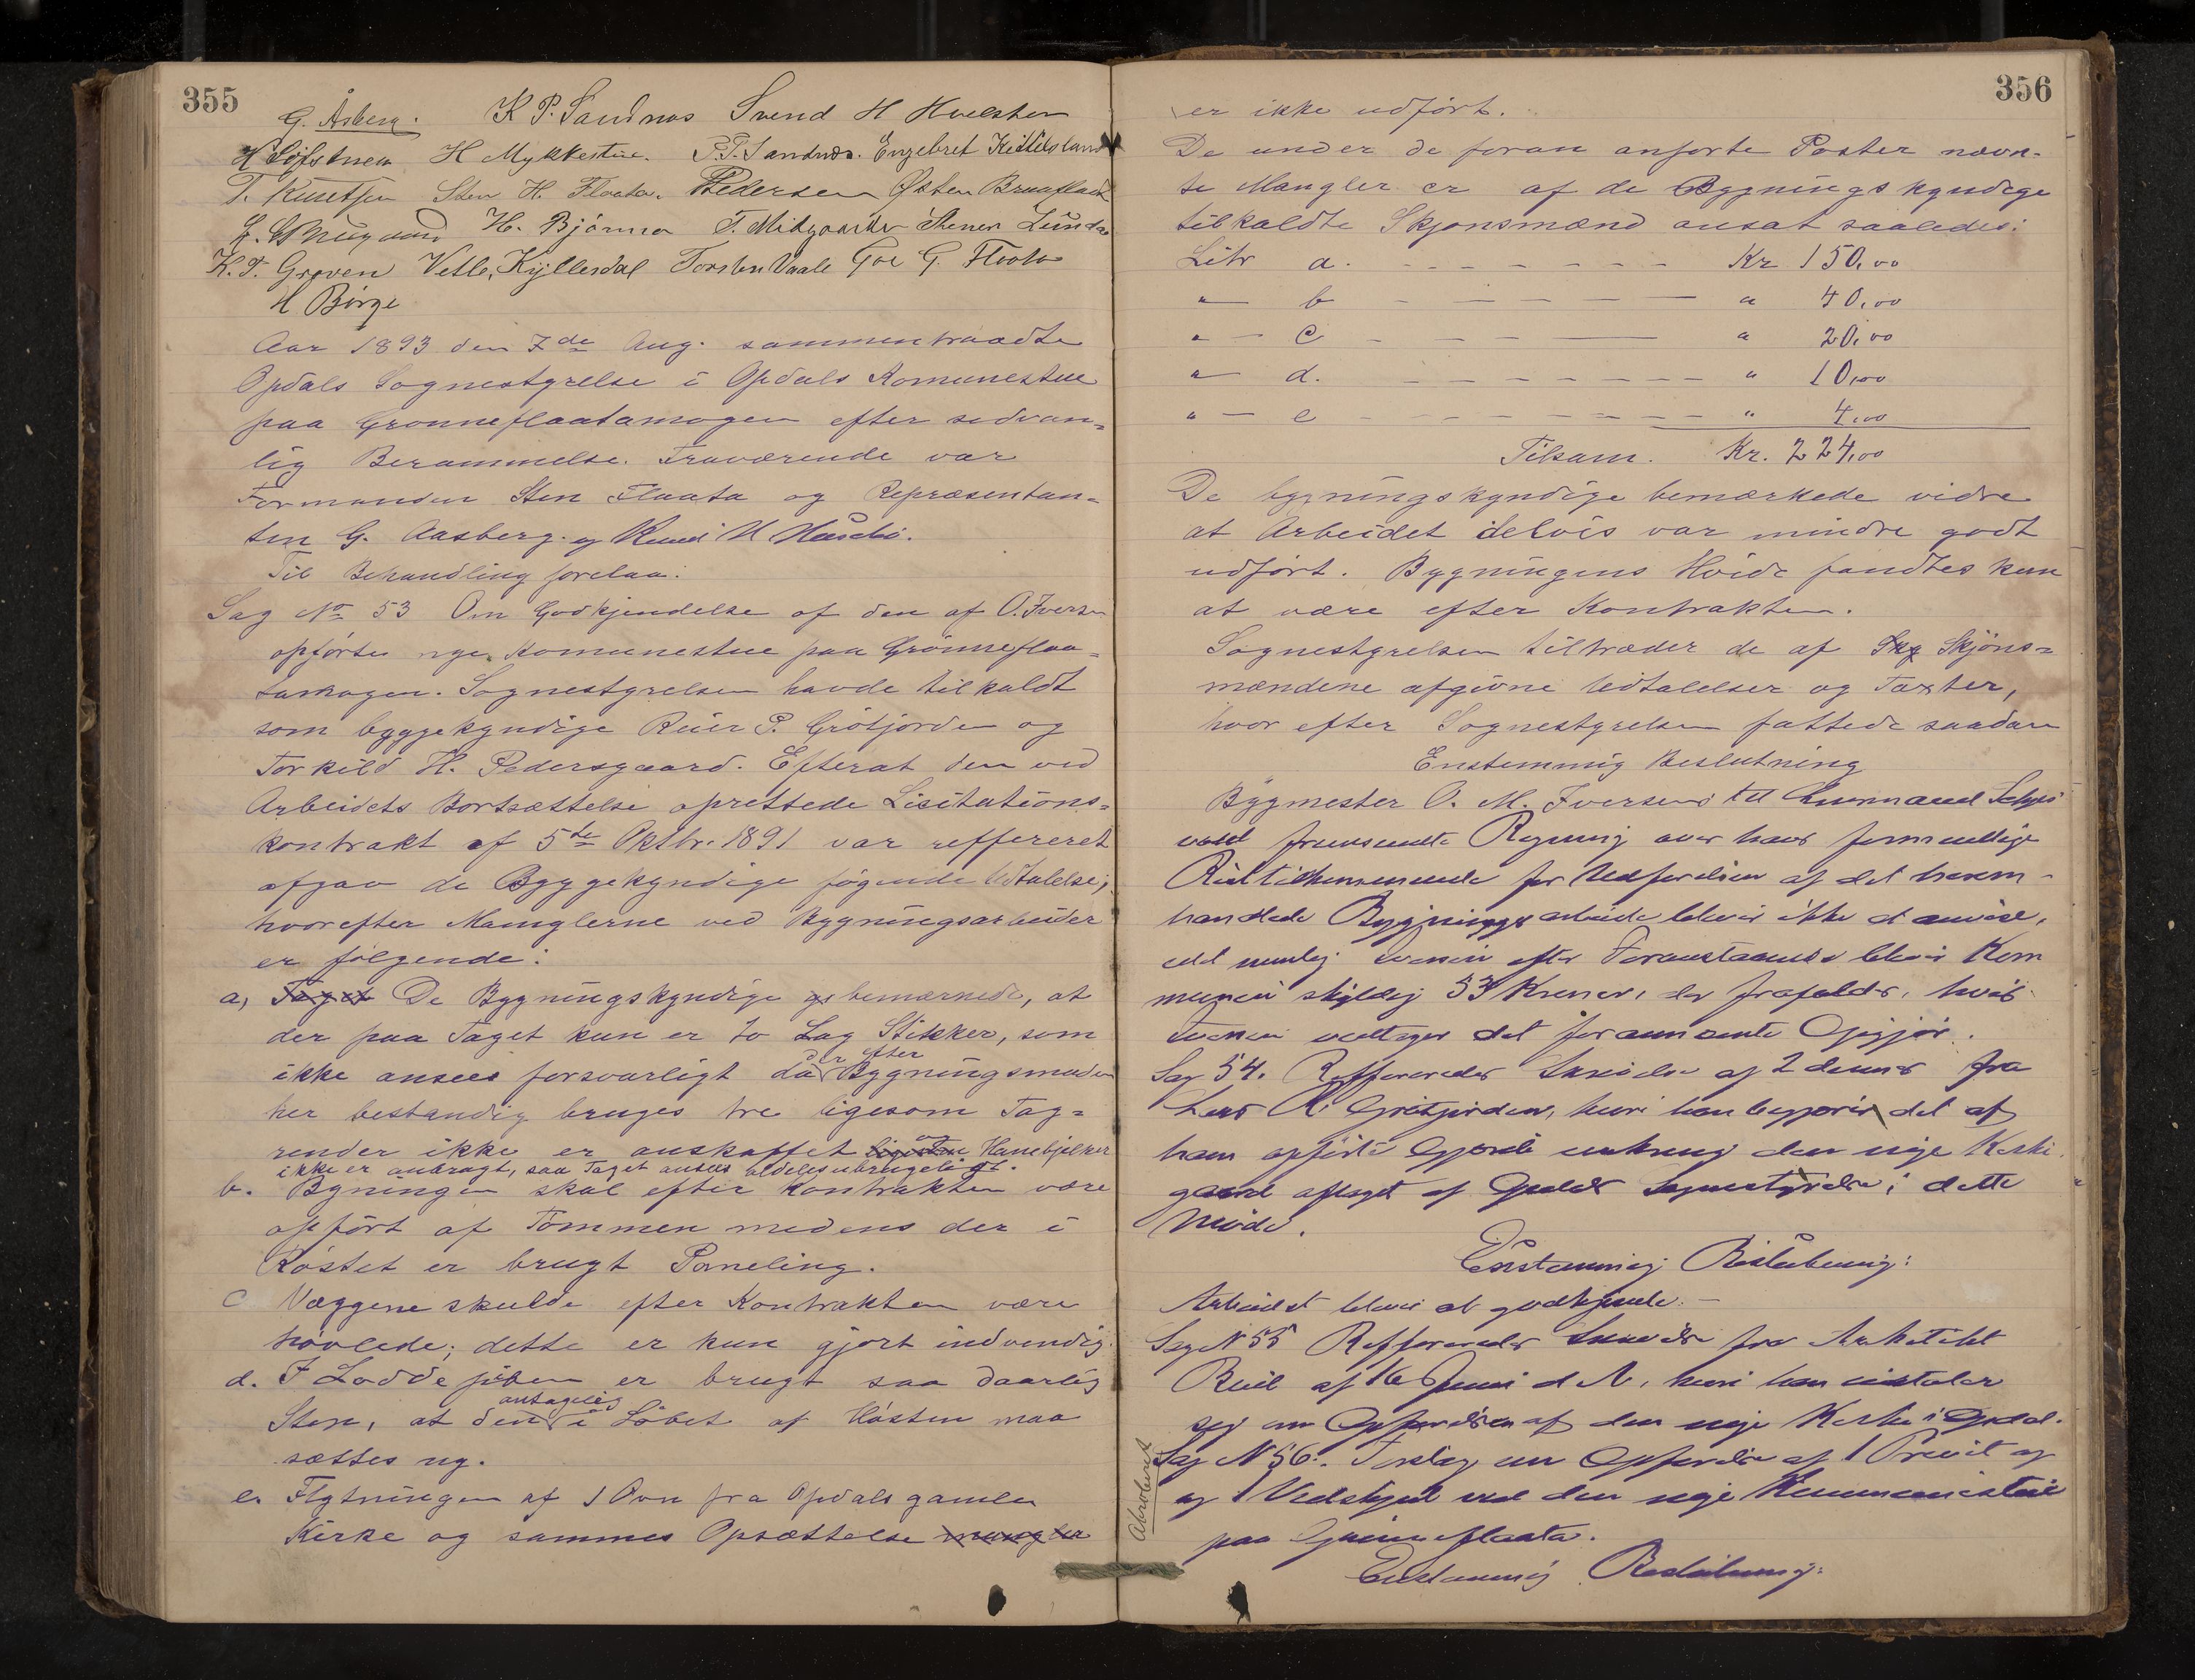 355
G. Åsberg. K P. Sandnes Svend H
H H Mykkestue. P. T. Sandnes. Engebret Kittilsland
T. Knutsen Sten H. Flaata. Pedersen Østen Braafladt
H. Bjørnna T. Midgaarden Stener Lunde
K. T. Groven Vetle, Kyllesdal Torsten Vaale G. Flaata
H Børge
Aar 1893 den 7de Aug. sammentraadte
Opdals Sognestyrelse i Opdals Komunestue
paa Grønneflaatamogen efter sedvan=
lig Berammelse. Fraværende var
Formanden Sten Flaata og Repræsentan=
ten G. Aasberg. og Knud
Til Behandling forelaa:
Sag No 53 Om Godkjendelse af den af O. Iversen
opførte nye Komunestue paa Grønneflaa=
tamogen. Sognestyrelsen havde tilkaldt
som byggekyndige Reier P. Grøtjorden og
Torkild H. Pedersgaard. Efterat den ved
Arbeidets Bortsættelse oprettede Lisitations=
kontrakt af 5te Oktbr. 1891 var reffereret
afgav de Byggekyndige føgende Udtalelse;
hvorefter Manglerne ved Bygningsarbeider
er følgende:
a, Taget De Bygningskyndige bemærkede, at
der paa Taget kun er to Lag Stikker, som
ikke ansees forsvarligt da der efter Bygningsmaaden
her bestandig bruges tre ligesom Tag=
render ikke er anskaffet og Hanebjelker
ikke er anbragt, saa Taget ansees aldeles ubrugeligt.
b. Bygningen skal efter Kontrakten være
opført af Tømmer medens der i
Røstet er brugt Paneling.
c Væggene skulde efter Kontrakten være
høvlede; dette er kun gjort indvendig.
d. I Lodde piben er brugt saa daarlig
Sten, at den antagelig i Løbet af Høsten maa
sættes ny.
e. Flytningen af 1 Ovn fra Opdals gamle
Kirke og sammes Opsættelse mangler
356
er ikke udført.
De under de foran anførte Poster nævn-
te Mangler er af de Bygningskyndige
tilkaldte Skjønsmænd ansat saaledes:
Litr a. - - - - - - - Kr 150,00
" b - - - - - - " 40,00
" - c - - - - - " 20,00
" d. - - - - - - - " 10,00
" - e - - - - - - - " 4,00
Tilsam. Kr. 224,00
De bygningskyndige bemærkede vidre
at Arbeidet delvis var mindre godt
udført. Bygningens Høide fandtes kun
at være efter Kontrakten.
Sognestyrelsen tiltræder de af Skjøns=
mændene afgivne Udtalelser og Taxter,
hvor efter Sognestyrelsen fattede saadan
Enstemmig Beslutning
Bygmester O. M. Iversens til Lensmand
fremsendte Regning over hans formentlige
Resttilkommende for Udførelsen af det herom-
handlede Bygningsarbeide bliver ikke at anvise,
idet nemlig Iversen efter Foranstaaende bliver Kom
munen skyldig 53 Kroner, der frafaldes, hvis
Iversen vedtager det forannævnte Opgjør.
Sag 54. Refereredes Skrivelse af 2 dennes fra
R. Grøtjorden, hvori han begjærer det af
ham opførte Gjerde omkring den nye Kirke
gaard aftaget af Opdals Sognestyrelse i dette
Møde.
Enstemmig Beslutning:
Arbeidet bliver at godkjende. -
Sag N 55 Reffereredes Skrivelse fra Arkitekt
af 16 Juni d. A., hvori han
sig om Opførelsen af den nye Kirke i Opdal.
Sag N 56. Forslag om Opførelse af 1 Privet og
og 1 Vedskjul ved den nye Kommunestue
paa Grønneflaata.
Enstemmig Beslutning: